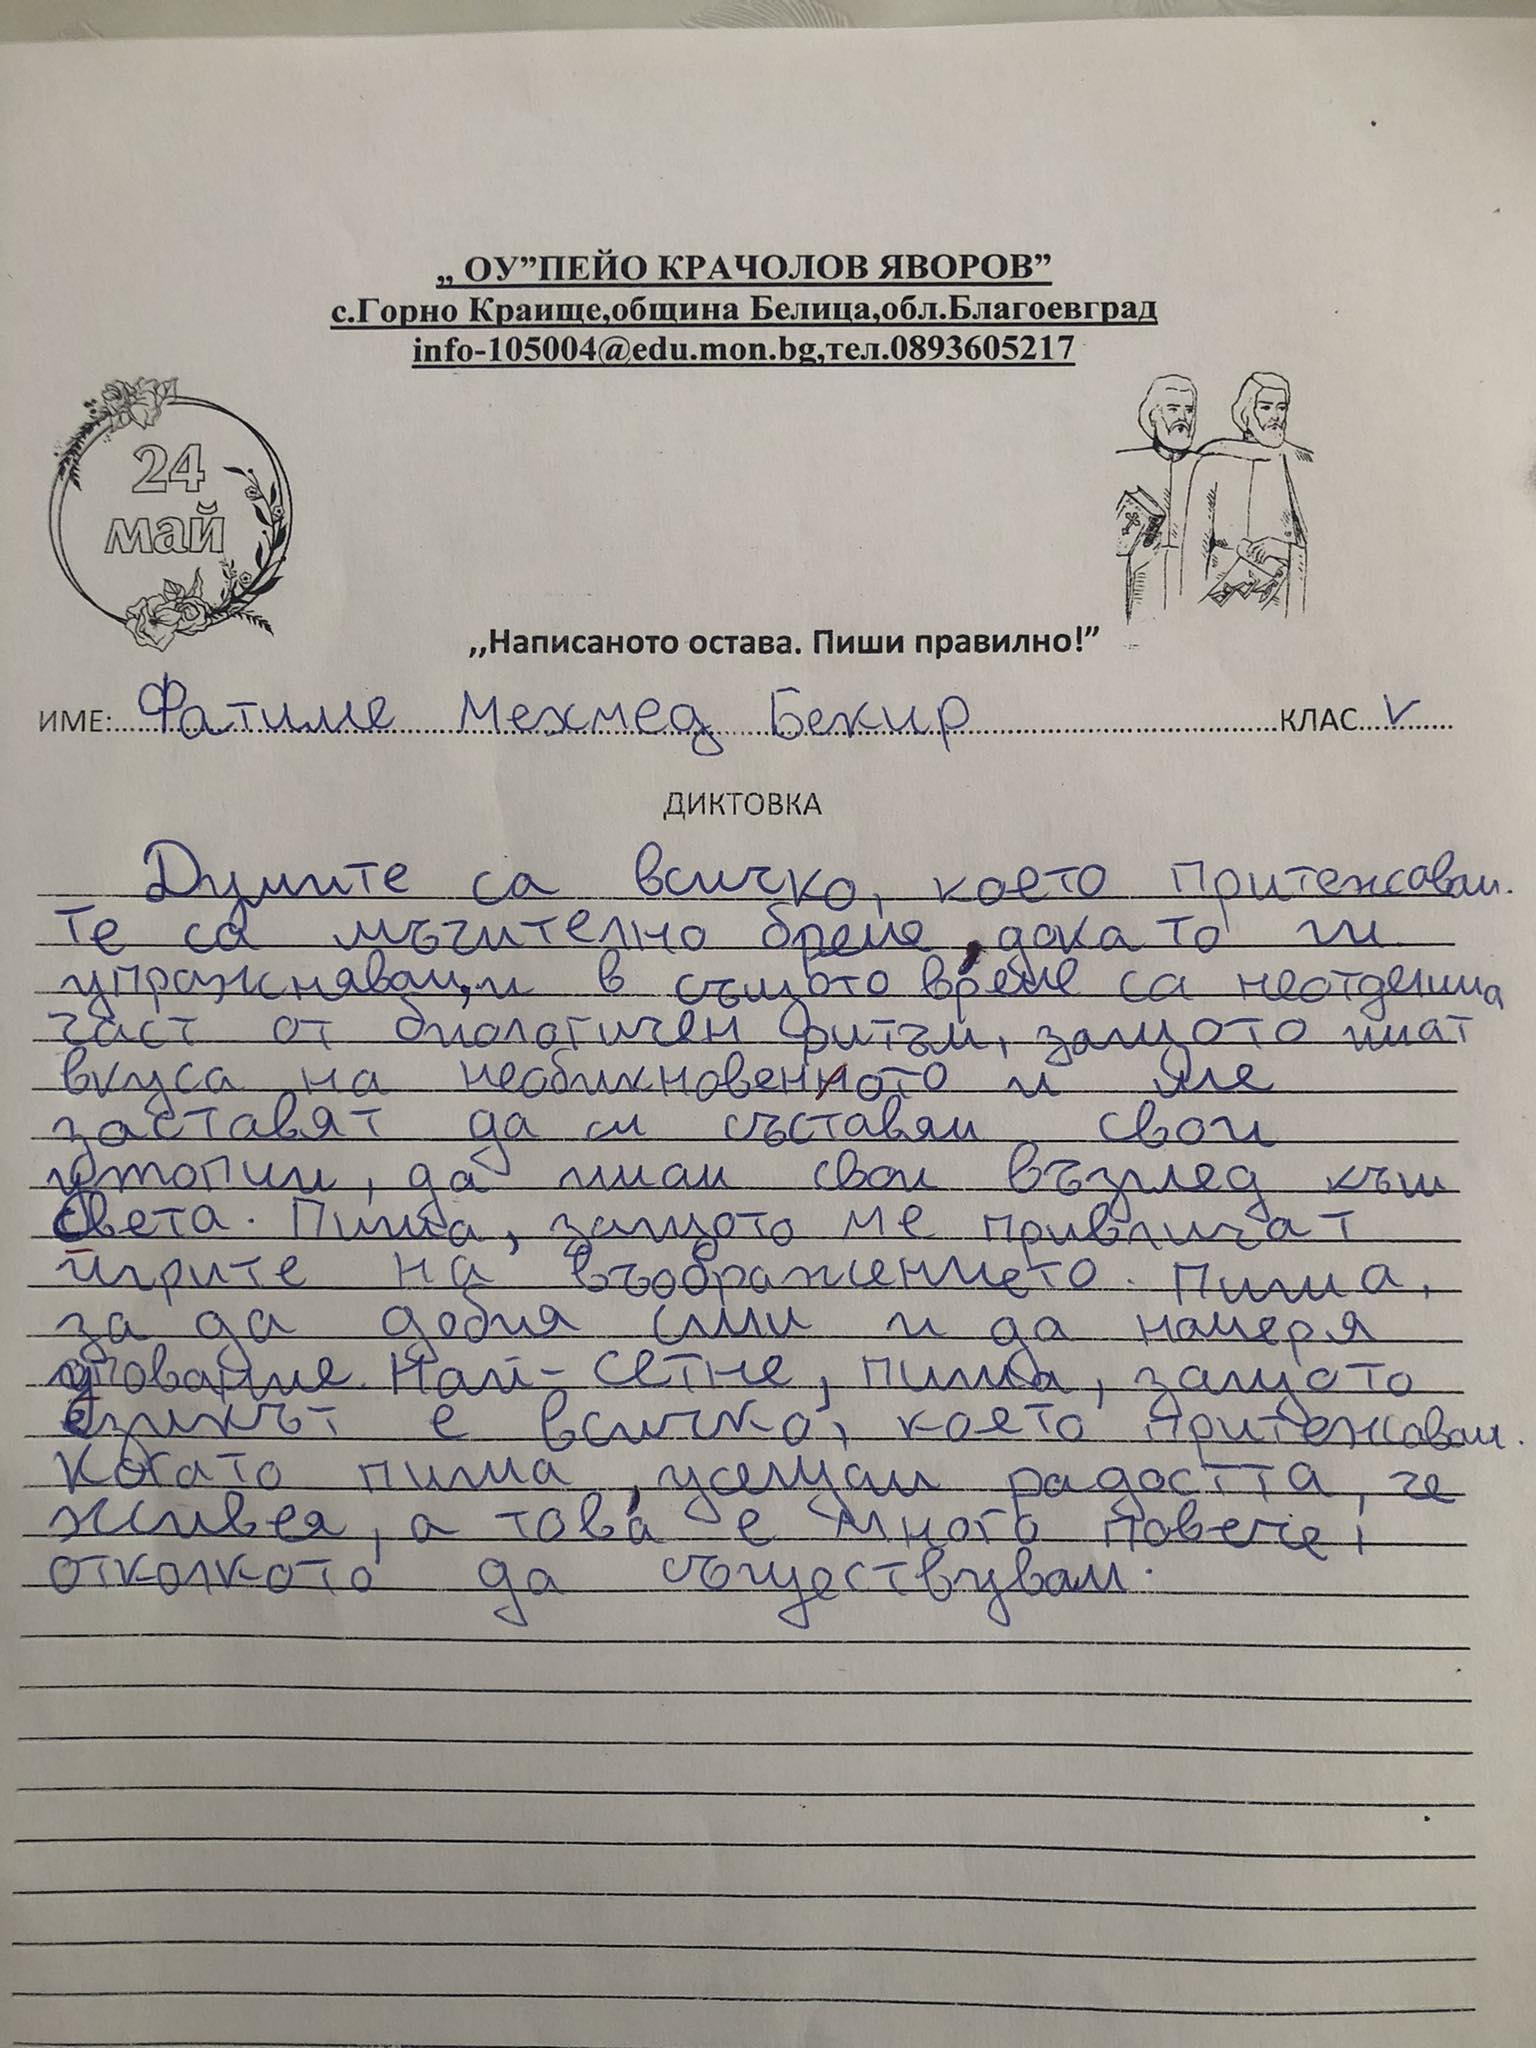 „ ОУ”ПЕЙО КРАЧОЛОВ ЯВОРОВ”
с.Горно Краище,община Белица,обл.Благоевград
info-105004@edu.mon.bg,тел.0893605217
24
май
,,Написаното остава. Пиши правилно!”
ИМЕ: Фатиме Мехмед Бекир КЛАС V
ДИКТОВКА
Думите са всичко, което притежавам.
Те са мъчително бреме, докато ги
упражнявам, и в същото време са неотделима
част от биологичен ритъм, защото имат
вкуса на необикновеното и ме
заставят да си съставям свои
утопии, да имам свои възглед към
света. Пиша, защото ме привличат
игрите на въображението. Пиша,
за да добия сили и да намеря
упование. Най-сетне, пиша, защото
езикът е всичко, което притежавам.
Когато пиша, усещам радостта, че
живея, а това е много повече,
отколкото да съществувам.